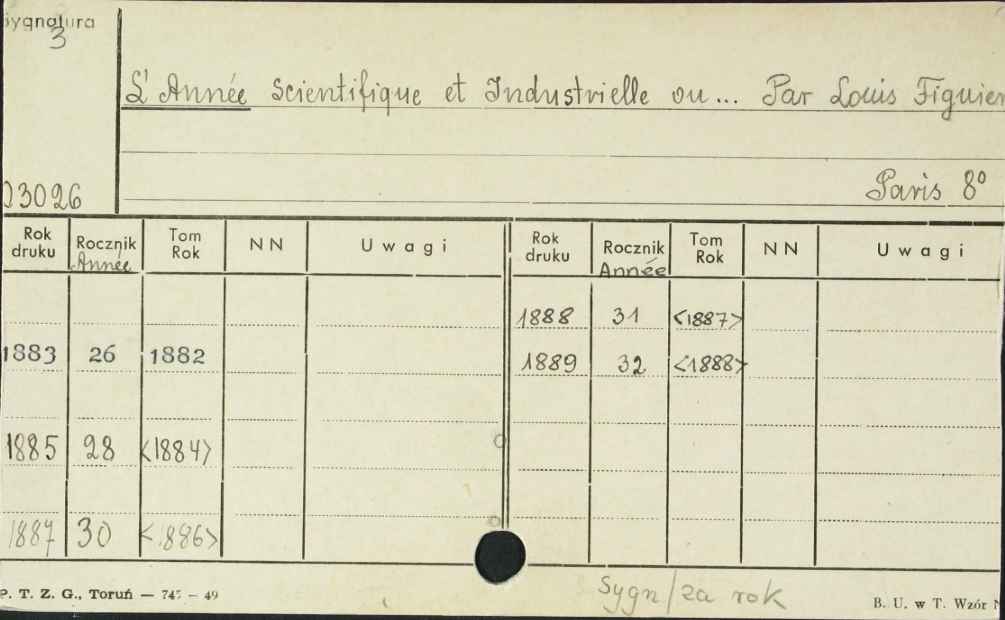 Sygnatura
3
L'Année Scientifique et Industrielle ou... Par Louis Figuier
Paris 8°
03026
Rok druku Rocznik Année Tom Rok NN Uwagi Rok druku Rocznik Année Tom Rok NN Uwagi
1888 31 <1887>
1883 26 1882 1889 32 <1888>
1885 28 <1884>
1887 30 <1886>
Sygn/za rok
P. T. Z. G., Toruń — 745 — 49
B. U. w T. Wzór